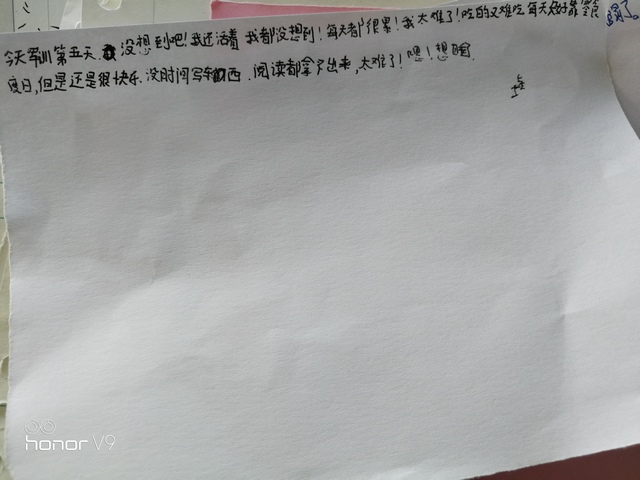 今天军训第五天.没想到吧!我还活着 我都没想到!每天都很累!我太难了!吃的又难吃每天只好靠零食
度日,但是还是很快乐.没时间写东西.阅读都拿不出来,太难了!嗯!想睡
honor V9